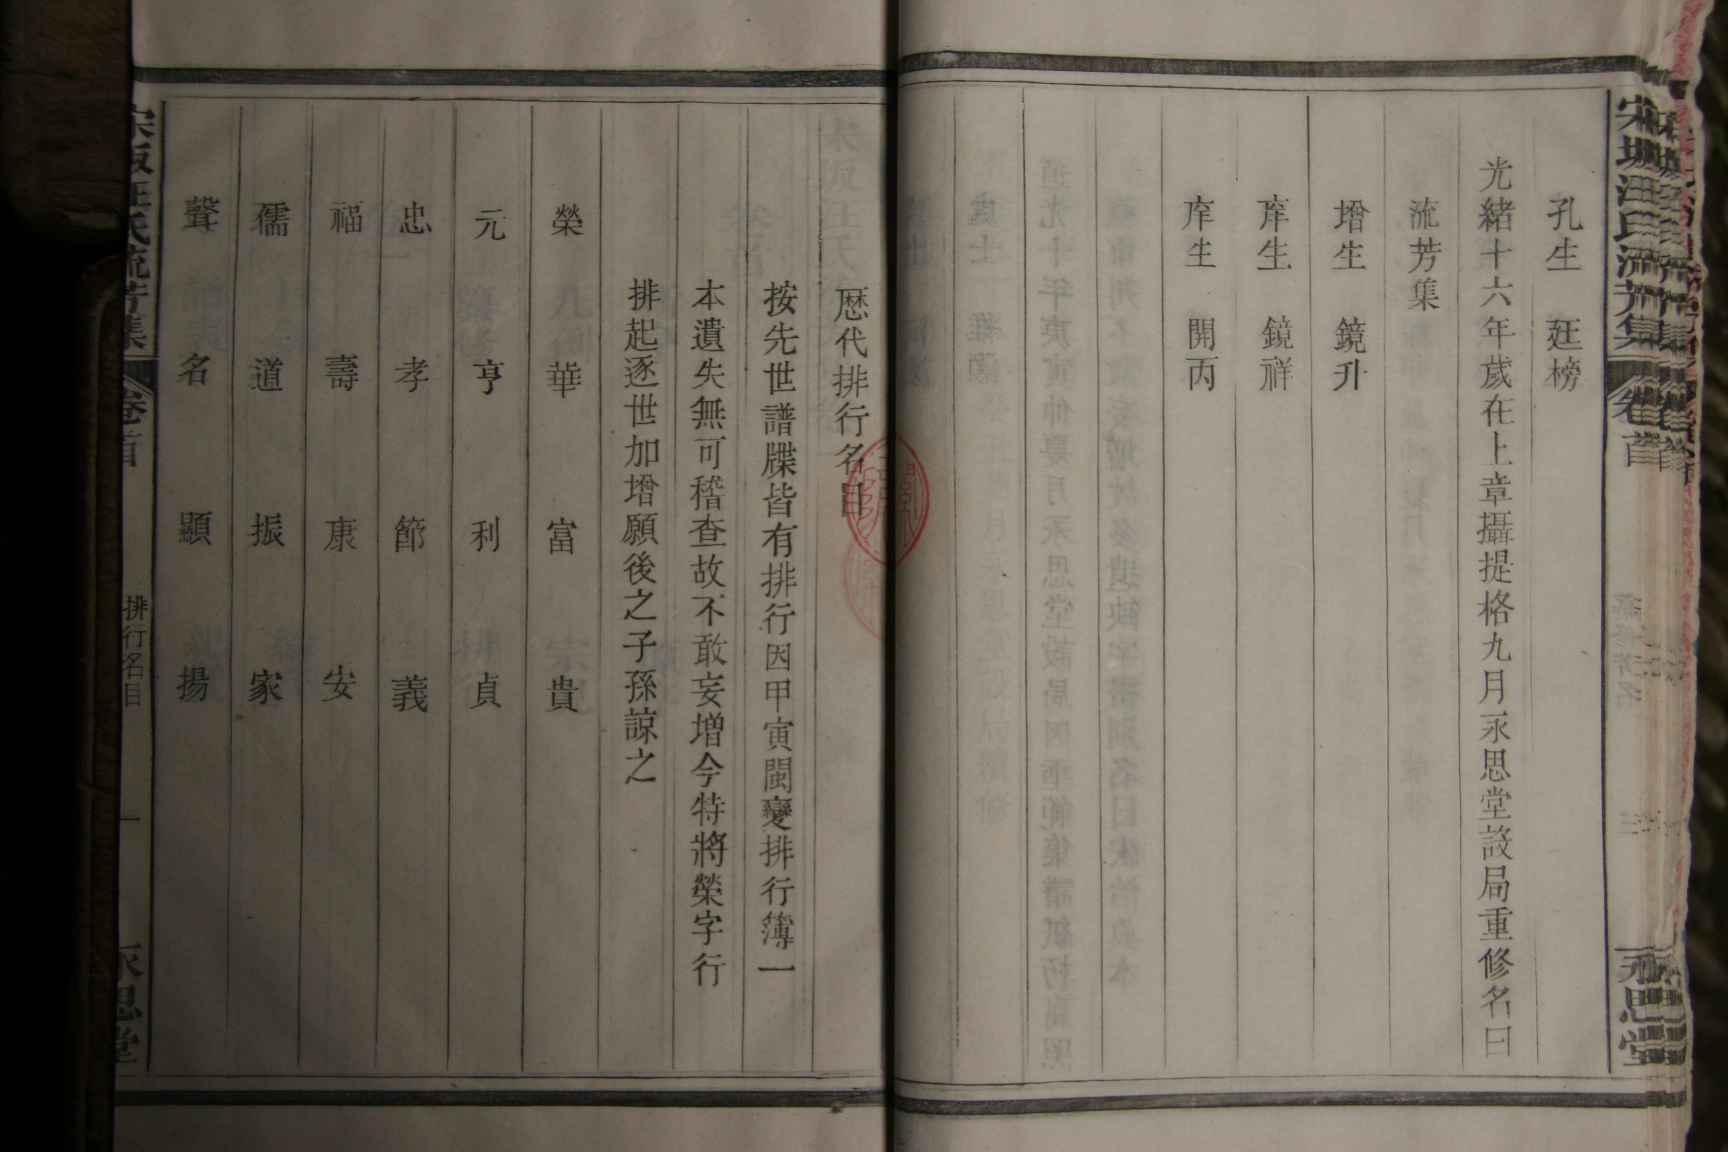 孔生　廷榜
光緒十六年歲在上章攝提格九月永思堂設局重修名曰
流芳集
增生　鏡升
庠生　鏡祥
庠生　開丙
歴代排行名目
按先世譜牒皆有排行因甲寅閩變排行簿一
本遺失無可稽查故不敢妄增今特將榮字行
排起逐世加增願後之子孫諒之
榮　華　富　貴
元　亨　利　貞
忠　孝　節　義
福　壽　康　安
儒　道　振　家
聲　名　顯　揚
汪氏流芳集　卷首　排行名目　一　永思堂